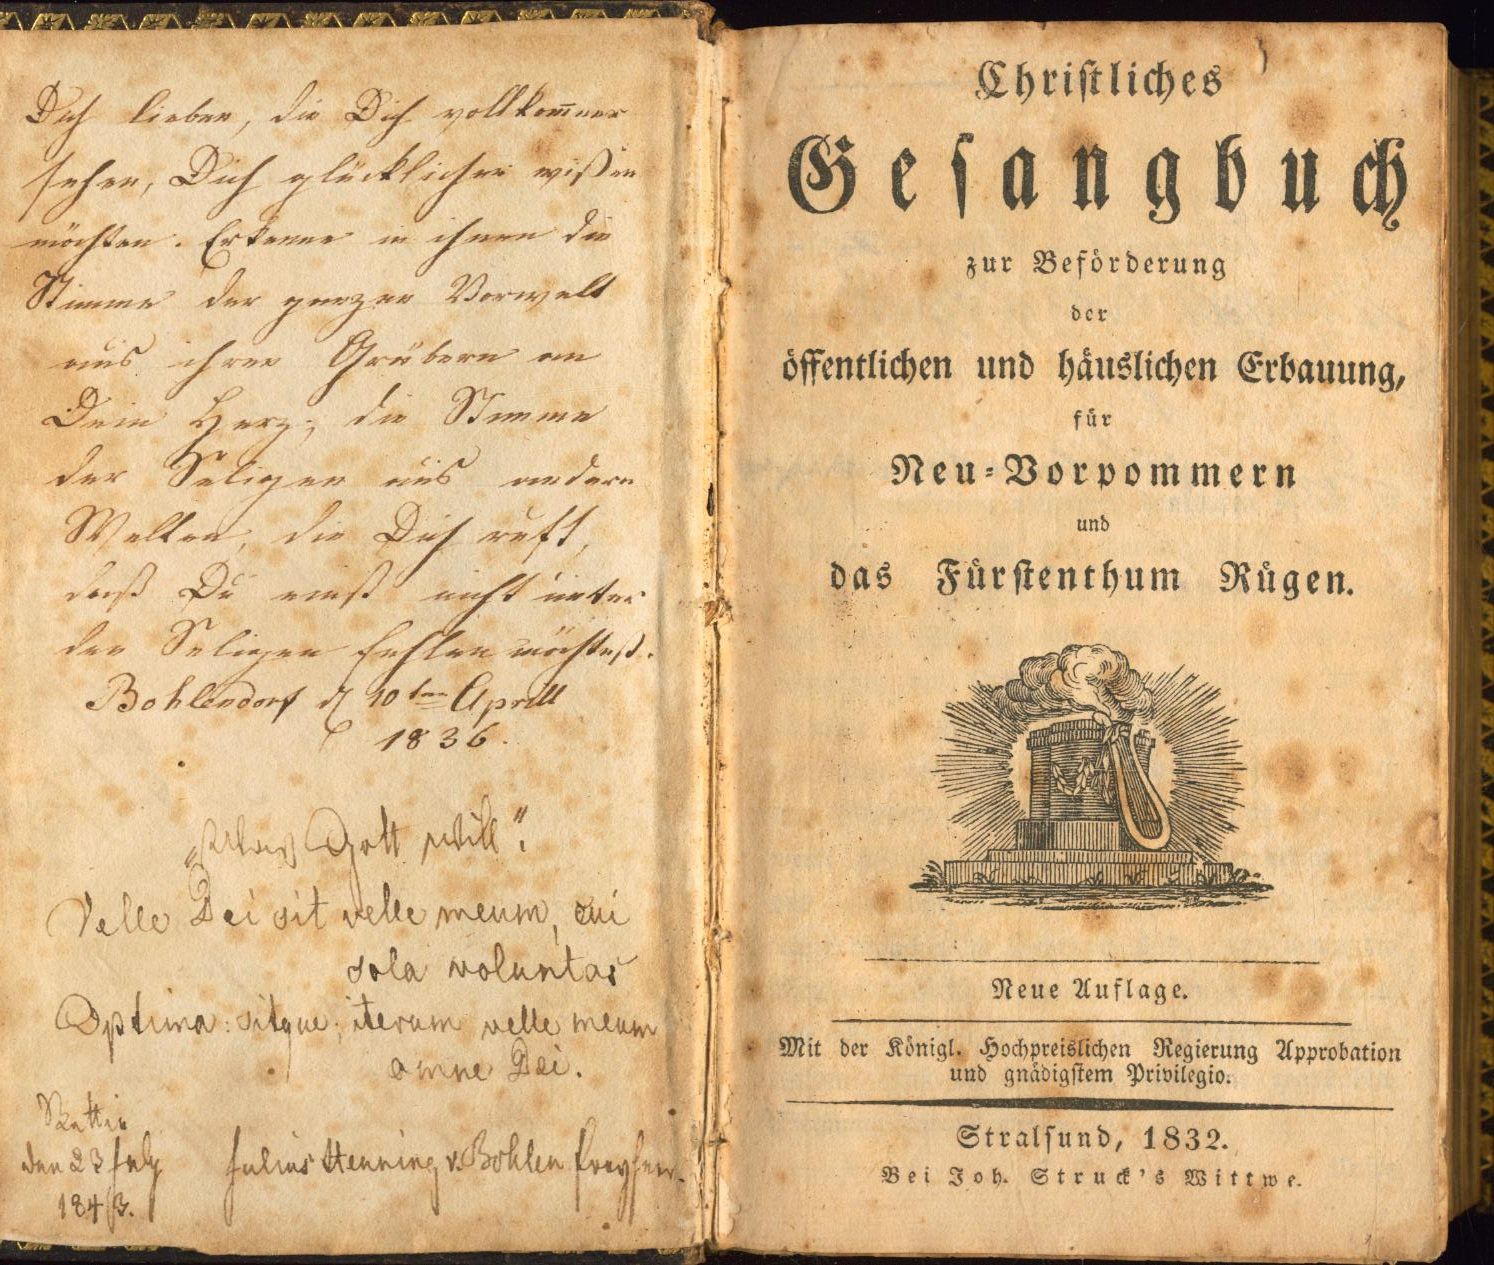 Dich lieben, die Dich vollkom̅ner
sehen, Dich glücklicher wißen
möchten. Erkenne in ihnen die
Stimme der ganzen Vorwelt
aus ihren Gräbern an
Dein Herz, die Stimme
der Seligen aus andern
Welten, die Dich ruft,
daß Du einst nicht unter
den Seligen fehlen möchtest.
Bohlendorf d 10ten Aprill
1836.
„Was Gott will“.
Velle Dei sit velle meum, cui
sola voluntas
Optima: sitque, iterum velle meum
omne Dei.
den 23 July
1843.
Julius Henning v. Bohlen
Christliches
Gesangbuch
zur Beförderung
der
öffentlichen und häuslichen Erbauung,
für
Neu-Vorpommern
und
das Fürstenthum Rügen.
Neue Auflage.
Mit der Königl. Hochpreislichen Regierung Approbation
und gnädigstem Privilegio.
Stralsund, 1832.
Bei Joh. Struck's Wittwe.